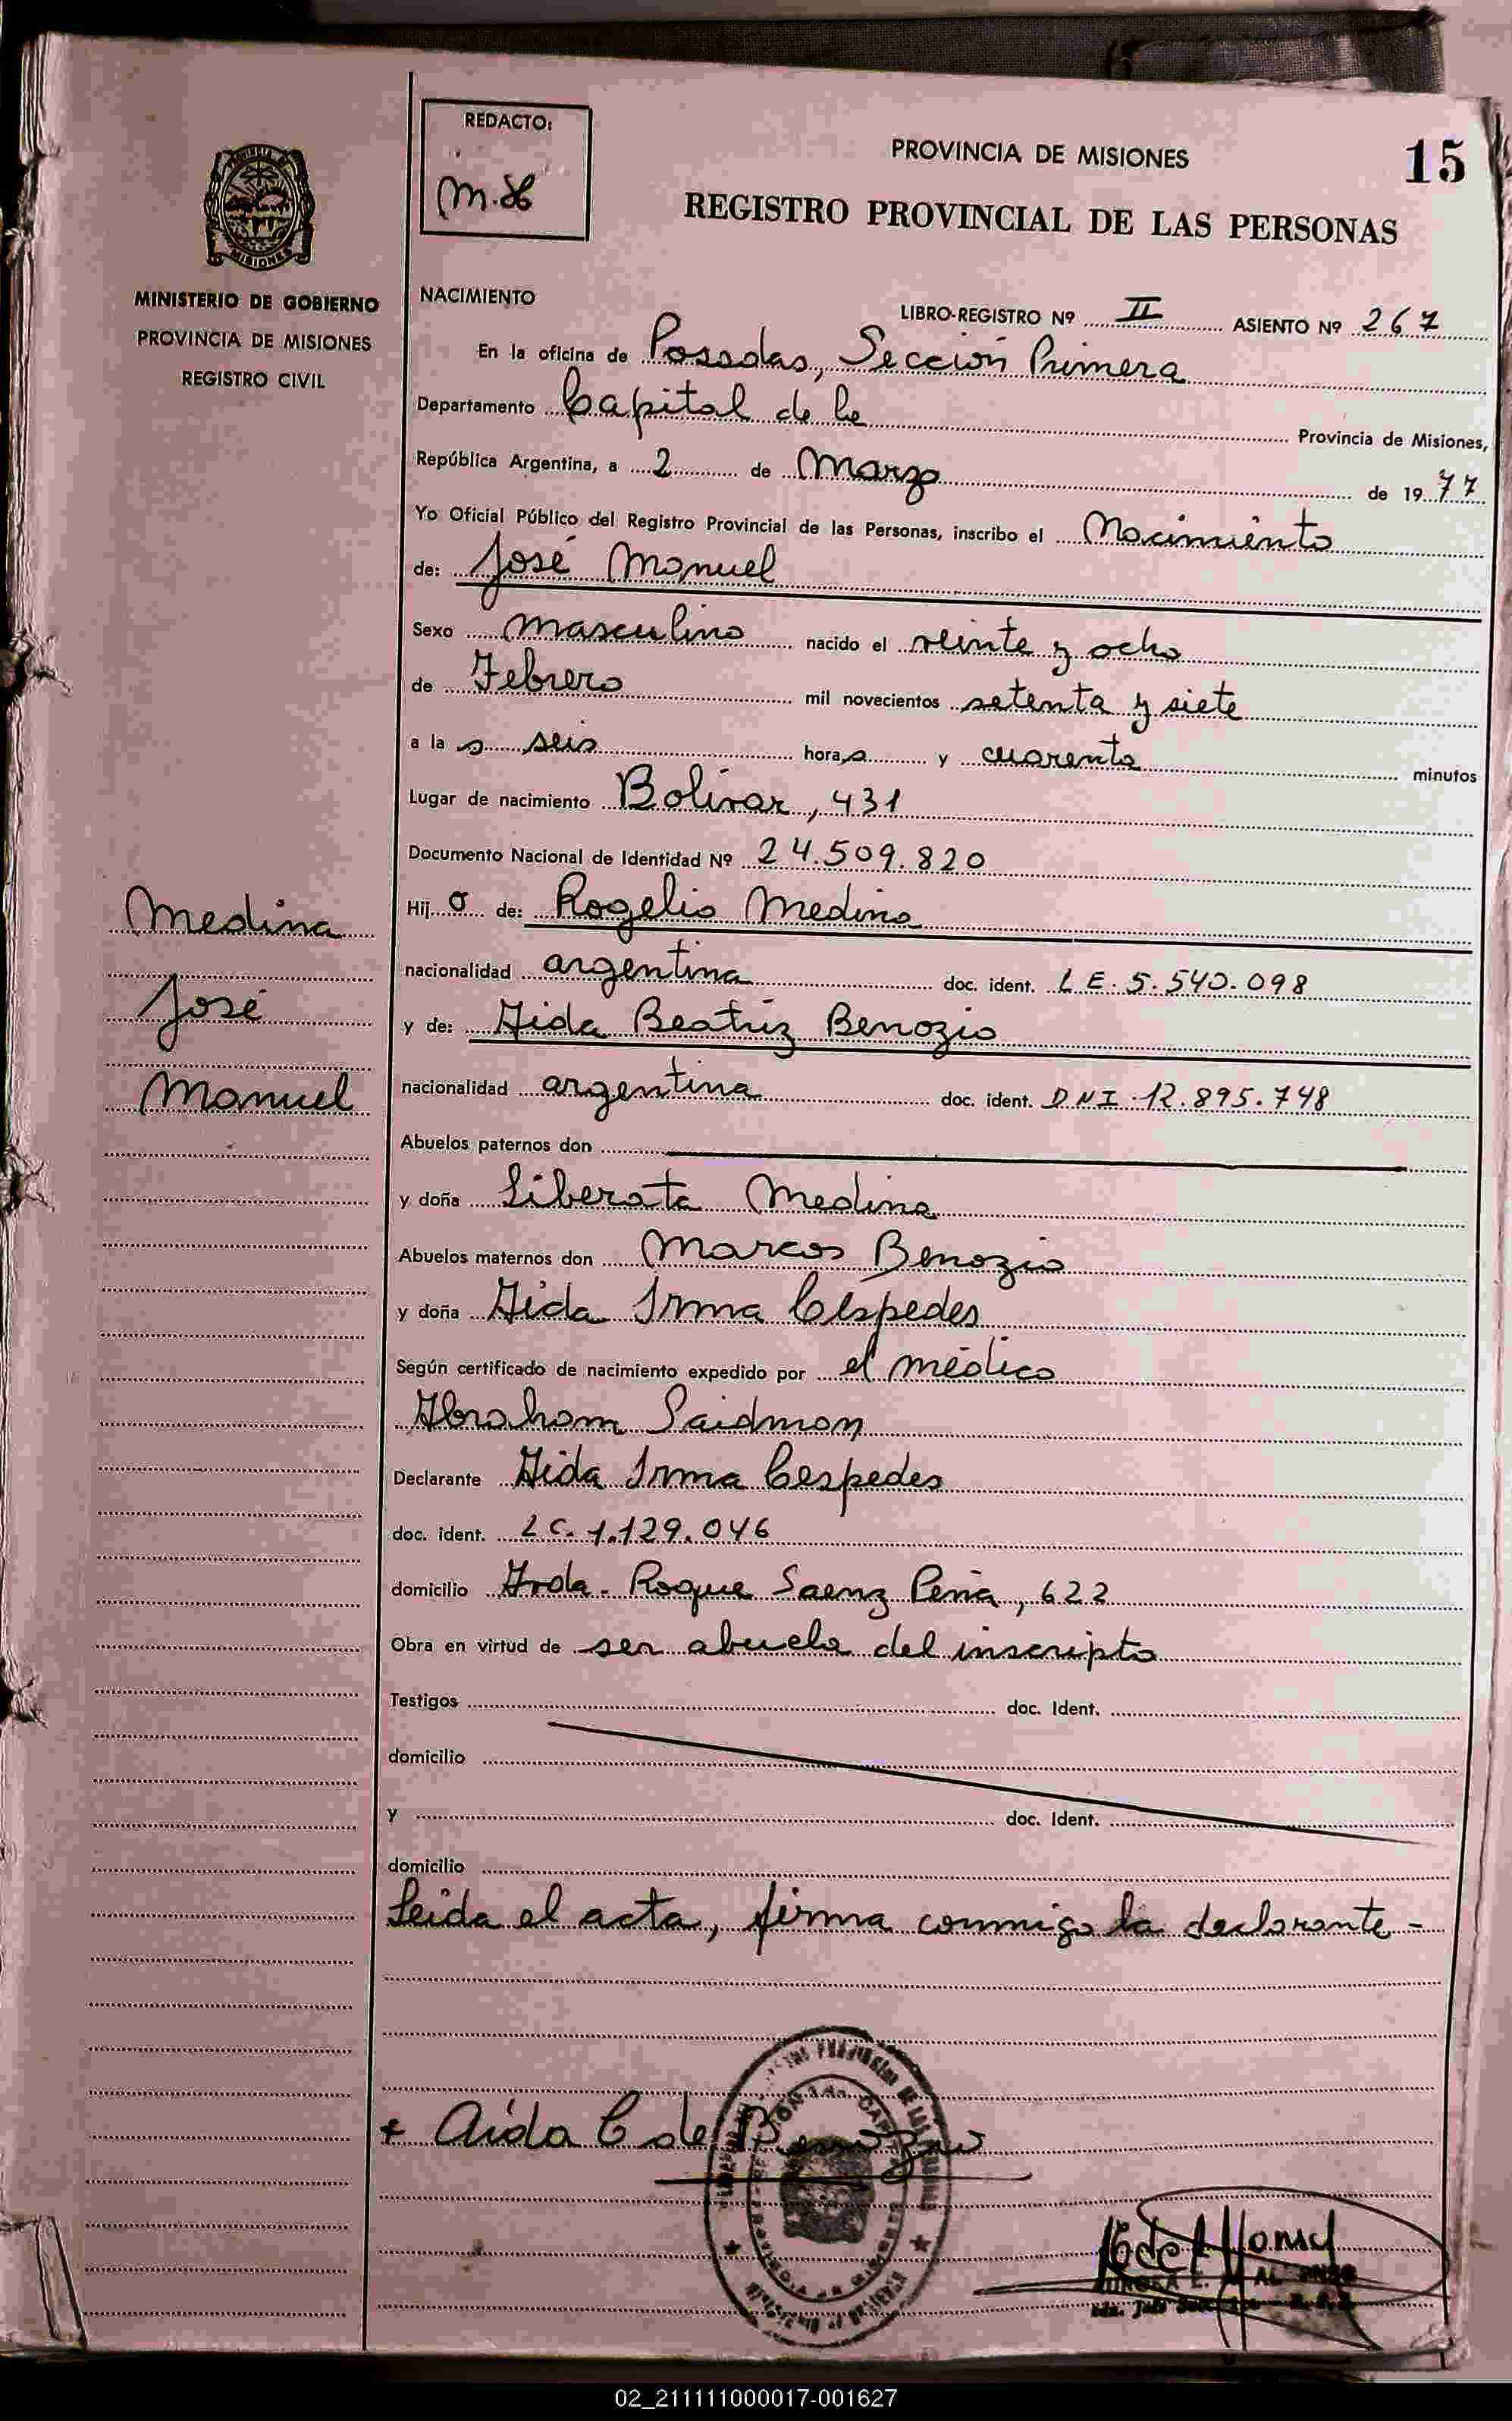 REDACTO:
PROVINCIA DE MISIONES
15
REGISTRO PROVINCIAL DE LAS PERSONAS
MISIONES
MINISTERIO DE GOBIERNO
PROVINCIA DE MISIONES
REGISTRO CIVIL
NACIMIENTO
LIBRO-REGISTRO Nº II ASIENTO Nº 267
En la oficina de Posadas, Sección Primera
Departamento Capital de la Provincia de Misiones,
República Argentina, a 2 de Marzo de 1977
Yo Oficial Público del Registro Provincial de las Personas, inscribo el Nacimiento
de: José Manuel
Sexo masculino nacido el veinte y ocho
de Febrero mil novecientos setenta y siete
a la s seis horas y cuarenta minutos
Lugar de nacimiento Bolivar, 431
Documento Nacional de Identidad Nº 24.509.820
Medina
José
Manuel
Hij o de: Rogelio Medina
nacionalidad argentina doc. ident. L E. 5.540.098
y de: Aida Beatriz Benozio
nacionalidad argentina doc. ident. DNI. 12.895.748
Abuelos paternos don
y doña Liberata Medina
Abuelos maternos don Marcos Benozio
y doña Aida Irma Cespedes
Según certificado de nacimiento expedido por el médico
Abraham Saidman
Declarante Aida Irma Cespedes
doc. ident. L C. 1.129.046
domicilio Avda. Roque Saenz Peña, 622
Obra en virtud de ser abuela del inscripto
Testigos doc. Ident.
domicilio
y doc. Ident.
domicilio
Leida el acta, firma conmigo la declarante -
Aida C de Benozio
02_211111000017-001627